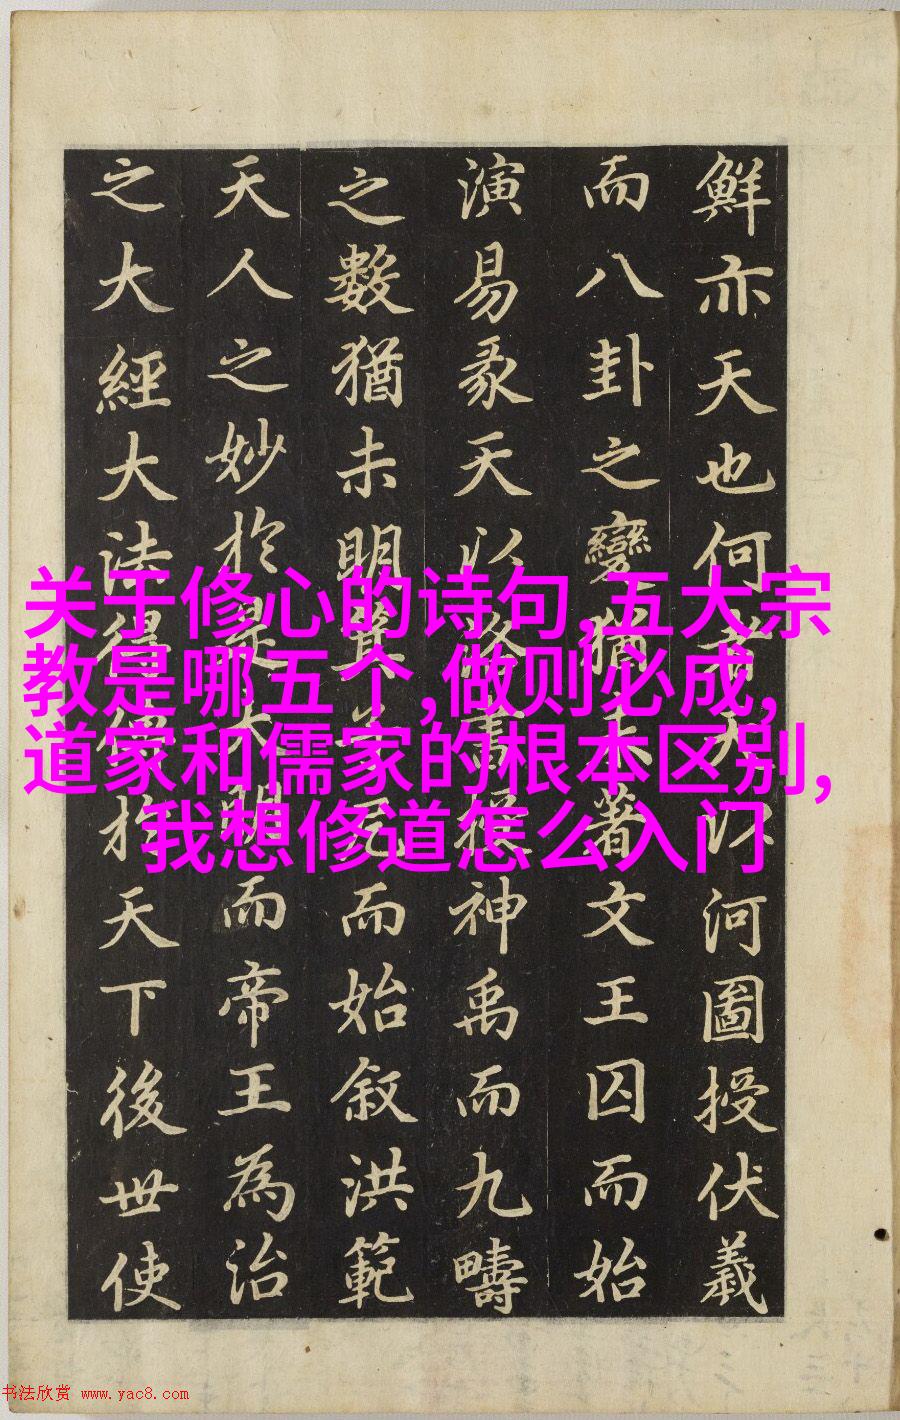 鮮亦天也何者天以河圖授伏羲
而八卦之變猶未著文王囚而始
演易彖天以洛書授神禹而九疇
之數猶未明箕子而始叙洪範
天人之妙於是大明而帝王為治
之大經大法得傳於天下後世使
关于修心的诗句,五大宗
教是哪五个,做则必成,
道家和儒家的根本区别,
我想修道怎么入门
书法欣赏 www.yac8.com